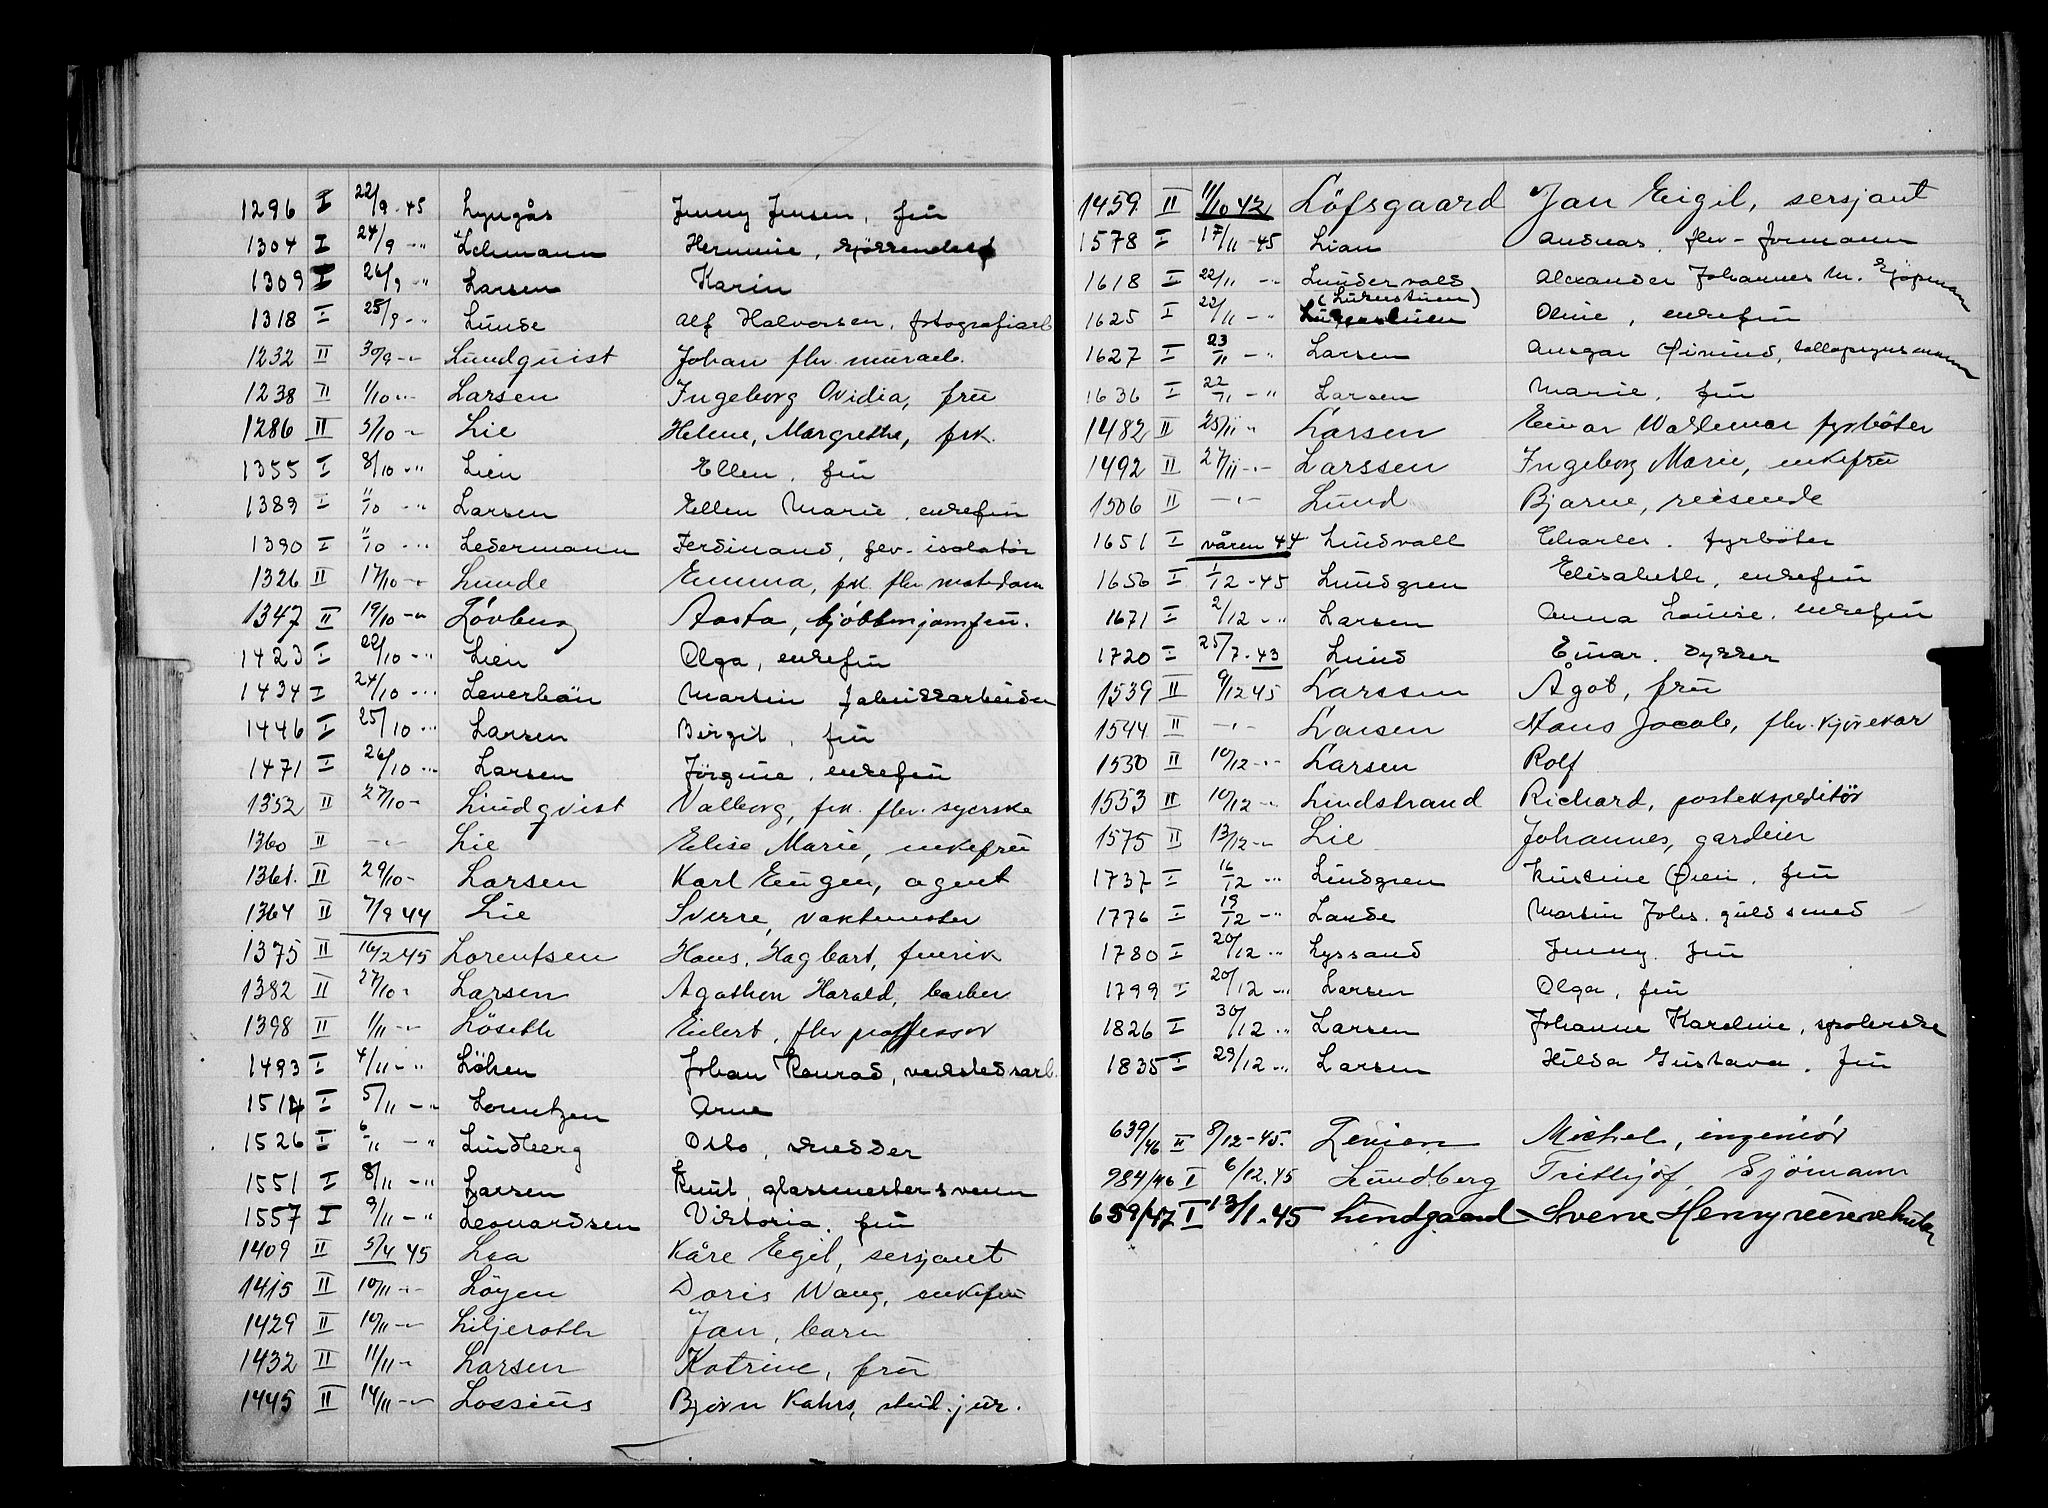 1296 I 22/9-45 Lyngås Jenny Jensen, fru
1304 I 24/9 -"- Lehmann Hermine,
1309 I 26/9 -"- Larsen Karin
1318 I 25/9 -"- Lunde Alf Halvorsen, fotografiarb
1232 II 30/9 -"- Lundquist Johan flv. murarb.
1238 II 1/10 -"- Larsen Ingeborg Ovidia, fru
1286 II 5/10 -"- Lie Helene, Margrethe, frk.
1355 I 8/10 -"- Lien Ellen, fru
1389 I 11/10 -"- Larsen Ellen Marie, enkefru
1390 I 11/10 -"- Ledermann Ferdinand, fev-isolatør
1326 II 17/10 -"- Lunde Emma, frk. flv. matrdam
1347 II 19/10 -"- Lövberg Aasta, kjöbbmjomfru.
1423 I 22/10 -"- Lien Olga, enkefru
1434 I 24/10 -"- Leverbän Martin fabrikkarbeider
1446 I 25/10 -"- Larsen Birgit, fru
1471 I 26/10 -"- Larsen Jörgine, enkefru
1352 II 27/10 - Lindqvist Valborg, frk. flv. syerske
1360 II -"- Lie Elise Marie, enkefru
1361. II 29/10 - Larsen Karl Eugen, agent
1364 II 7/9 44 Lie Sverre, vaktmester
1375 II 16/2 45 Lorentsen Hans, Hagbart, fenrik
1382 II 27/10 " Larsen Agathon Harald, barber
1398 II 1/11 -"- Löseth Eilert, flv professor
1493 I 4/11 -"- Löken Johan Konrad, verkstedsarb.
1514 I 5/11 -"- Lorentzen Arne
1526 I 6/11 -"- Lundberg Otto, skredder
1551 I 8/11 -"- Larsen Knut, glassmestersvenn
1557 I 9/11 -"- Leonardsen Viktoria, fru
1409 II 5/4 45 Lea Kåre Egil, sersjant
1415 II 10/11 -"- Löyen Doris Wang, enkefru
1429 II 10/11 -"- Liljeroth Jan, barn
1432 II 11/11 -"- Larsen Katrine, fru
1445 II 14/11 -"- Lossius Bjørn Kahrs, stud. jur.
1459 II 11/10 42 Löfsgaard Jan Eigil, sersjant
1578 I 17/11-45 Lian Andreas, flv-formann
1618 I 22/11 -"- Lundervold Alexander Johannes M. Kjöpmann
(Lurenstuen)
1625 I 22/11 -"- Oline, enkefru
1627 I 23/11 -"- Larsen Ansgar Øivind, tolloppsynsmann
1636 I 22/11 -"- Larsen Marie, fru
1482 II 25/11 " Larsen Einar Waldemar fyrböter
1492 II 27/11 -"- Larssen Ingeborg Marie, enkefru
1506 II -"- Lund Bjarne, reisende
1651 I våren 44 Lindvall Charles, fyrböter
1656 I 1/12-45 Lundgren Elisabeth, enkefru
1671 I 2/12 -"- Larsen Anna Louise, enkefru
1720 I 25/7-43 Lund Einar, dykker
1539 II 9/12 45 Larssen Ågot, fru
1544 II -"- Larsen Hans Jacob, flv. kjørekar
1530 II 10/12 -"- Larsen Rolf
1553 II 10/12 -"- Lindstrand Richard, postekspeditør
1575 II 13/12 -"- Lie Johannes, gardeier
1737 I 16/12 -"- Lindgren Kristine Øien, fru
1776 I 19/12 -"- Lande Martin Johs. gullsmed
1780 I 20/12 -"- Lyssand Jenny, fru
1799 I 20/12 -"- Larsen Olga, fru
1826 I 30/12 -"- Larsen Johanne Karoline, spolerske
1835 I 29/12 -"- Larsen Hilda Gustava, fru
639/46 II 8/12-45. Levion Michel, ingeniör
984/46 I 6/12.45 Lundberg Frithjof, Sjömann
659/47 I 13/1-45 Lundgaard Sverre Henry